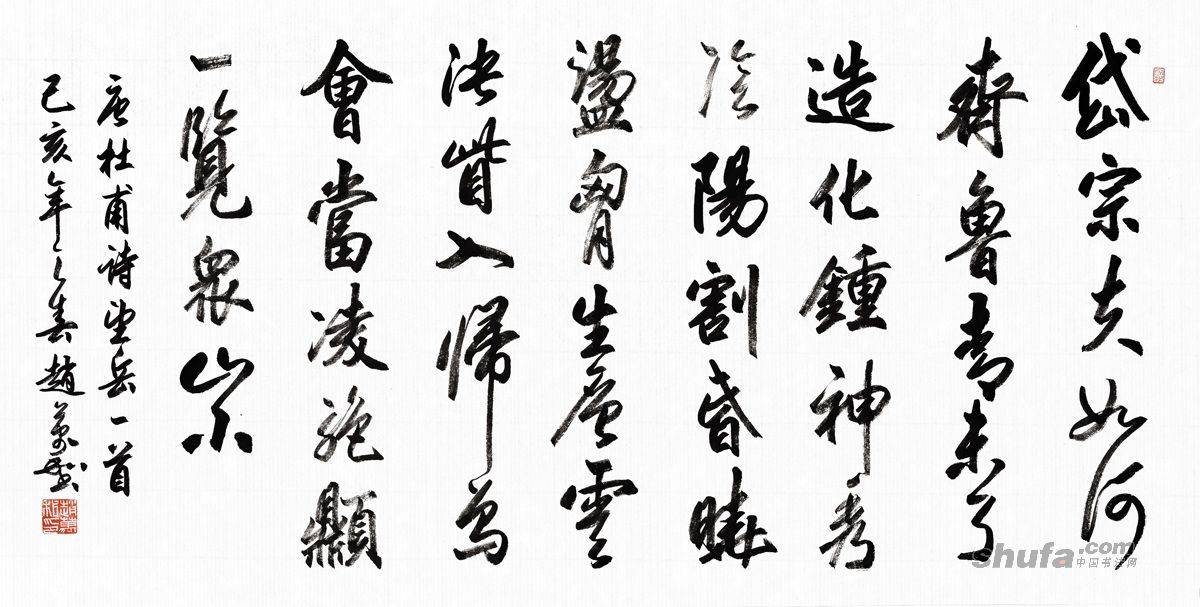 岱宗夫如何
齊魯青未了
造化鍾神秀
陰陽割昏曉
盪胷生層雲
決眥入歸鳥
會當凌絕𩕢
一覽眾山小
唐杜甫詩望岳一首
己亥年之春趙萬
shufa.com
中国书法网